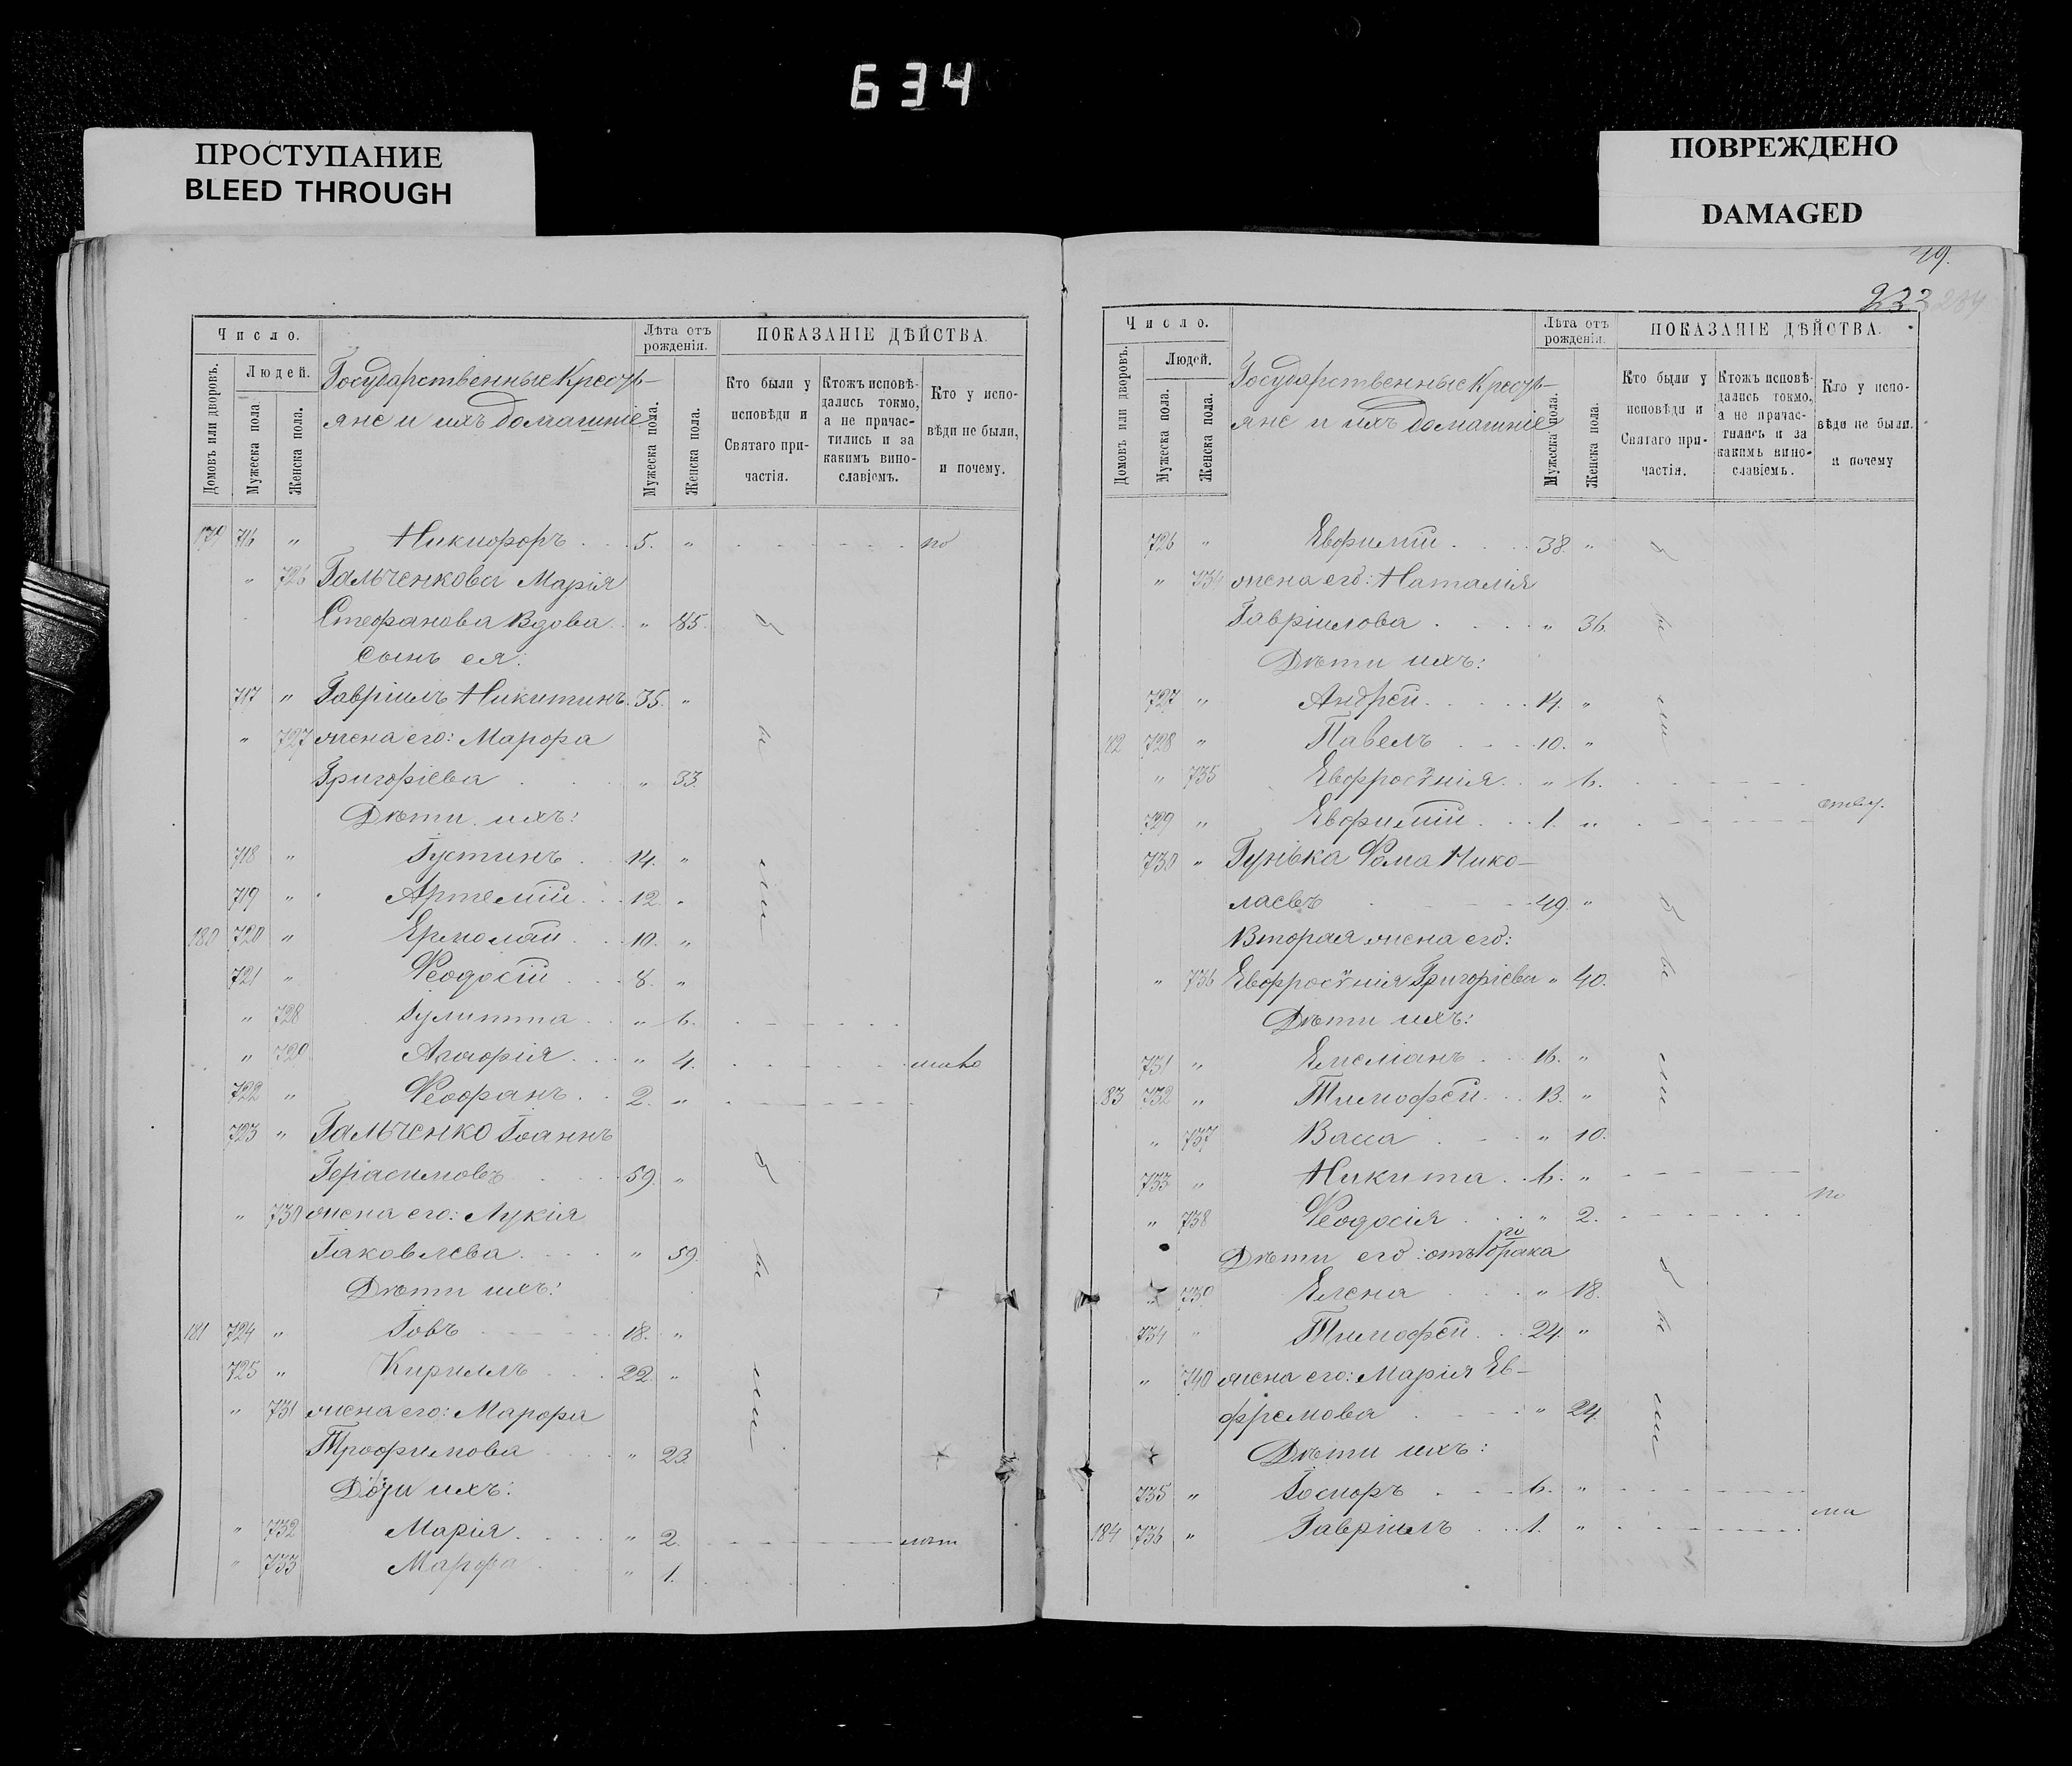 634
ПРОСТУПАНИЕ
BLEED THROUGH
ПОВРЕЖДЕНО
DAMAGED
49.
Число.
Домовъ или дворовъ.
Людей.
Мужеска пола
Женска пола.
Государственные Кресть-
яне и ихъ домашніе
Лѣта отъ рожденія.
Мужеска пола.
Женска пола.
ПОКАЗАНІЕ ДѢЙСТВА.
Кто были у исповѣди и Святаго причастія.
Ктожъ исповѣ-
дались токмо,
а не причас-
тились и за
какимъ вино-
славіемъ.
Кто у испо-
вѣди не были,
и почему.
179 716 " Никифоръ 5. " по
" 726 Гальченкова Марія
Стефанова Вдова " 85. б
сынъ ея:
717 " Гавріилъ Никитинъ 35. "
" 727 жена его: Марфа ы
Григоріева " 33.
Дѣти ихъ:
718 " Іустинъ 14. "
719 " Артемій 12. " ли
180 720 " Ермолай 10. "
721 " Ѳеодосій 8. "
" 728 Іулитта " 6.
" 729 Агафія " 4. мало
722 " Ѳеофанъ 2. "
723 " Гальченко Іоаннъ
Герасимовъ 59. " б
" 730 жена его: Лукія
Іаковлева " 59. ы
Дѣти ихъ:
181 724 " Іовъ 18. "
725 " Кириллъ 22. "
" 731 жена его: Марфа ли
Трофимова " 23.
Дочери ихъ:
" 732 Марія " 2. лѣт
" 733 Марфа " 1.
233 234
Число.
Домовъ или дворовъ.
Людей.
Мужеска пола.
Женска пола.
Государственные Кресть-
яне и ихъ домашніе
Лѣта отъ рожденія.
Мужеска пола.
Женска пола.
ПОКАЗАНІЕ ДѢЙСТВА.
Кто были у исповѣди и Святаго причастія.
Ктожъ исповѣ-
дались токмо,
а не причас-
тились и за
какимъ вино-
славіемъ.
Кто у испо-
вѣди не были.
и почему
726 " Евфимій 38. " б
" 734 жена его: Наталія
Гавріилова " 36. ы
Дѣти ихъ:
727 " Андрей 14. " ли
182 728 " Павелъ 10. "
" 735 Евфросѵнія " 6.
729 " Евфимій 1. "
730 " Гунька Ѳома Нико-
лаевъ 49. " б
Вторая жена его:
" 736 Евфросѵнія Григоріева " 40. ы
Дѣти ихъ:
731 " Емеліанъ 16. " ли
183 732 " Тимофей 13. "
" 737 Васса " 10.
733 " Никита 6. " по
" 738 Ѳеодосія " 2.
Дѣти его: отъ 1го брака
" 739 Елена " 18. б
734 " Тимофей 24. " ы
" 740 жена его: Марія Ев-
фремова " 24. ли
Дѣти ихъ:
735 " Іосифъ 6. "
184 736 " Гавріилъ 1. " ма